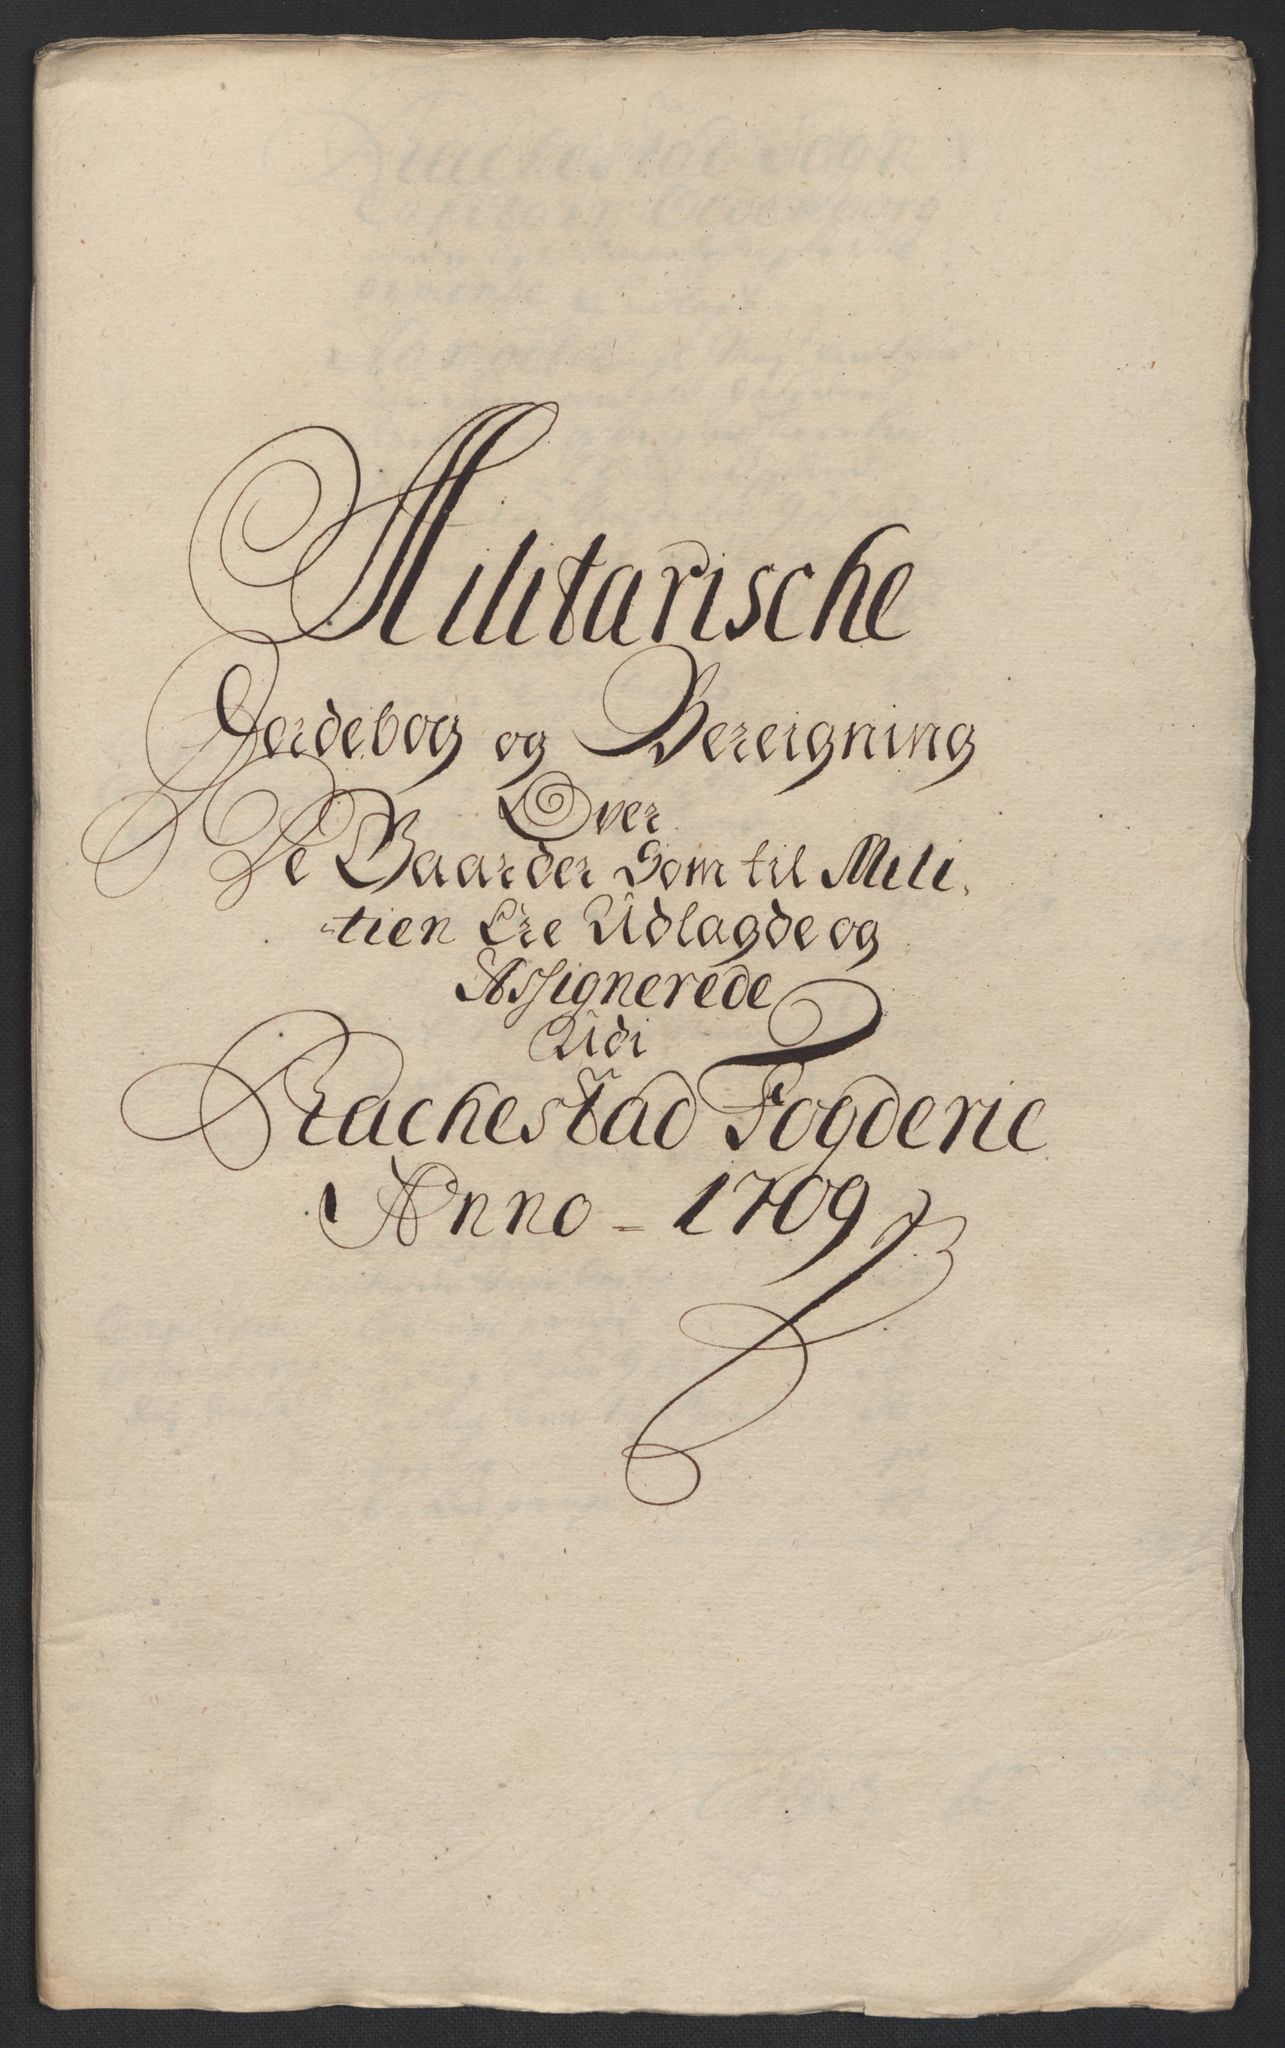 Militarische
Jordebog og Bereigning
Over
De Gaarder Som til Mili-
tien Ere Udlagde og
Assignerede
Udi
Rachestad Fogderie
Anno - 1709